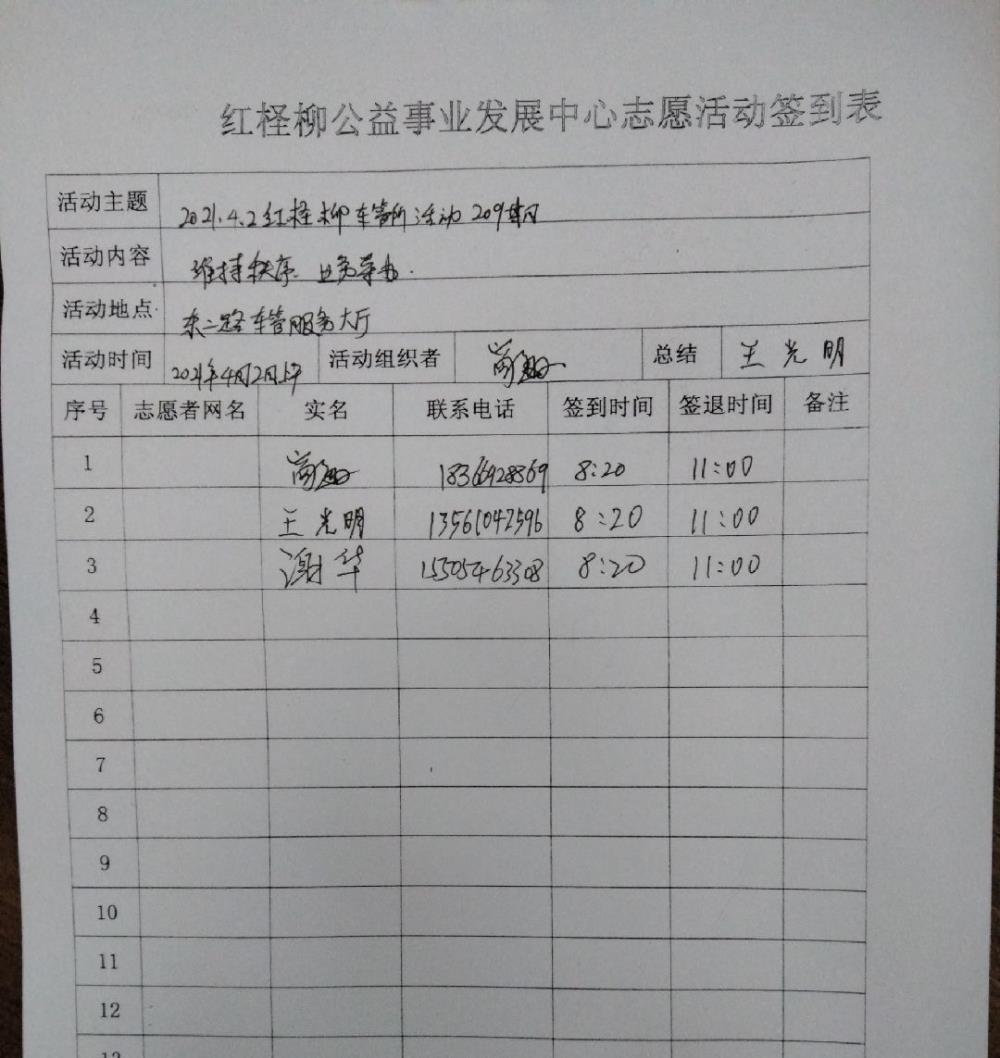 红柽柳公益事业发展中心志愿活动签到表
活动主题 2021.4.2红柽柳车管所活动209期
活动内容 维持秩序 业务导办.
活动地点 东二路车管服务大厅
活动时间 2021年4月2日上午 活动组织者 总结 王光明
序号 志愿者网名 实名 联系电话 签到时间 签退时间 备注
1 18366928869 8:20 11:00
2 王光明 13561042596 8:20 11:00
3 谢华 15505463308 8:20 11:00
4
5
6
7
8
9
10
11
12
13